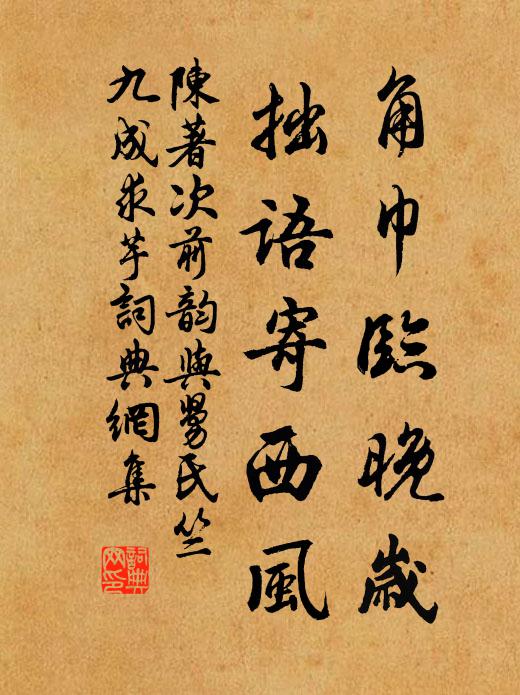 角巾臨晚歲
拙語寄西風
陳著次前韻與舅氏竺
九成求芋詞典網集
詞典
網印